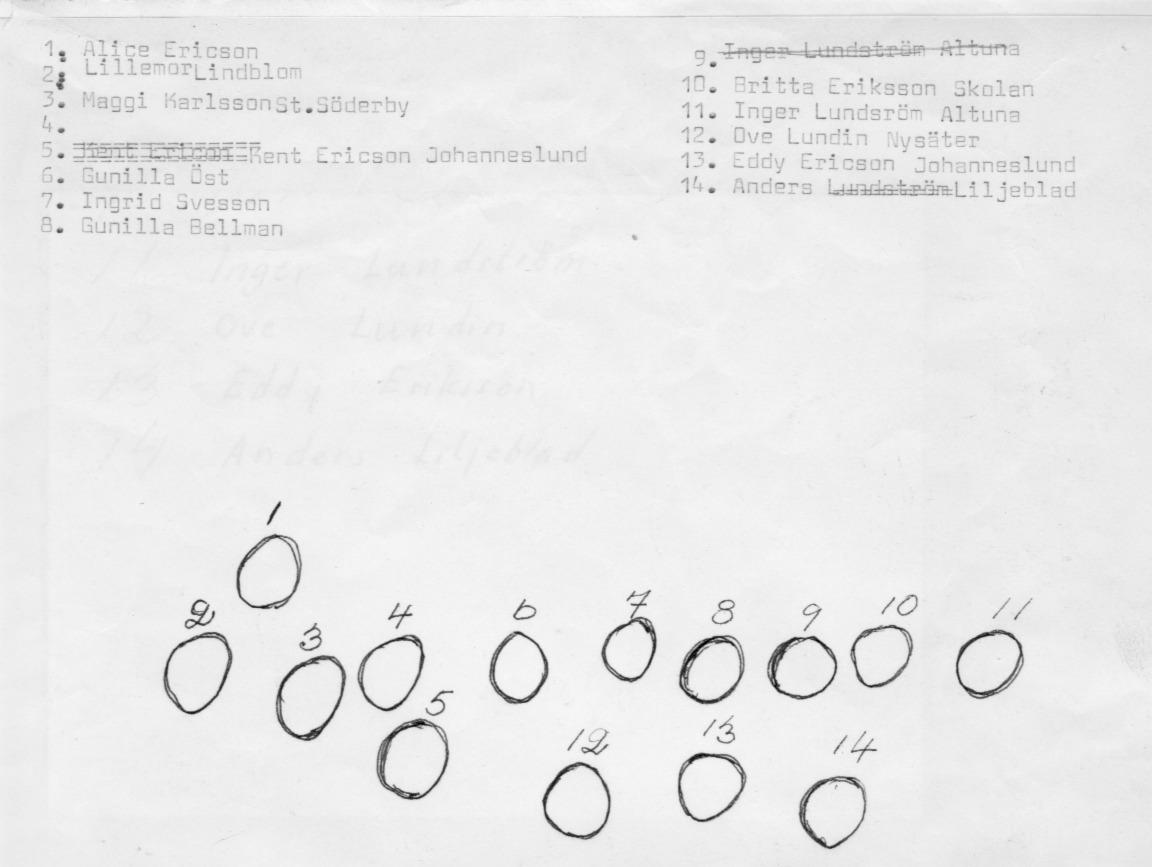 1. Alice Ericson
2. Lillemor Lindblom
3. Maggi Karlsson St.Söderby
4.
5. Kent Ericon Kent Ericson Johanneslund
6. Gunilla Öst
7. Ingrid Svesson
8. Gunilla Bellman
9. Inger Lundström Altuna
10. Britta Eriksson Skolan
11. Inger Lundsröm Altuna
12. Ove Lundin Nysäter
13. Eddy Ericson Johanneslund
14. Anders Lundström Liljeblad
11 Inger Lundström
12 Ove Lundin
13 Eddy Eriksson
14 Anders Liljeblad
1
2 3 4 6 7 8 9 10 11
5
12 13 14